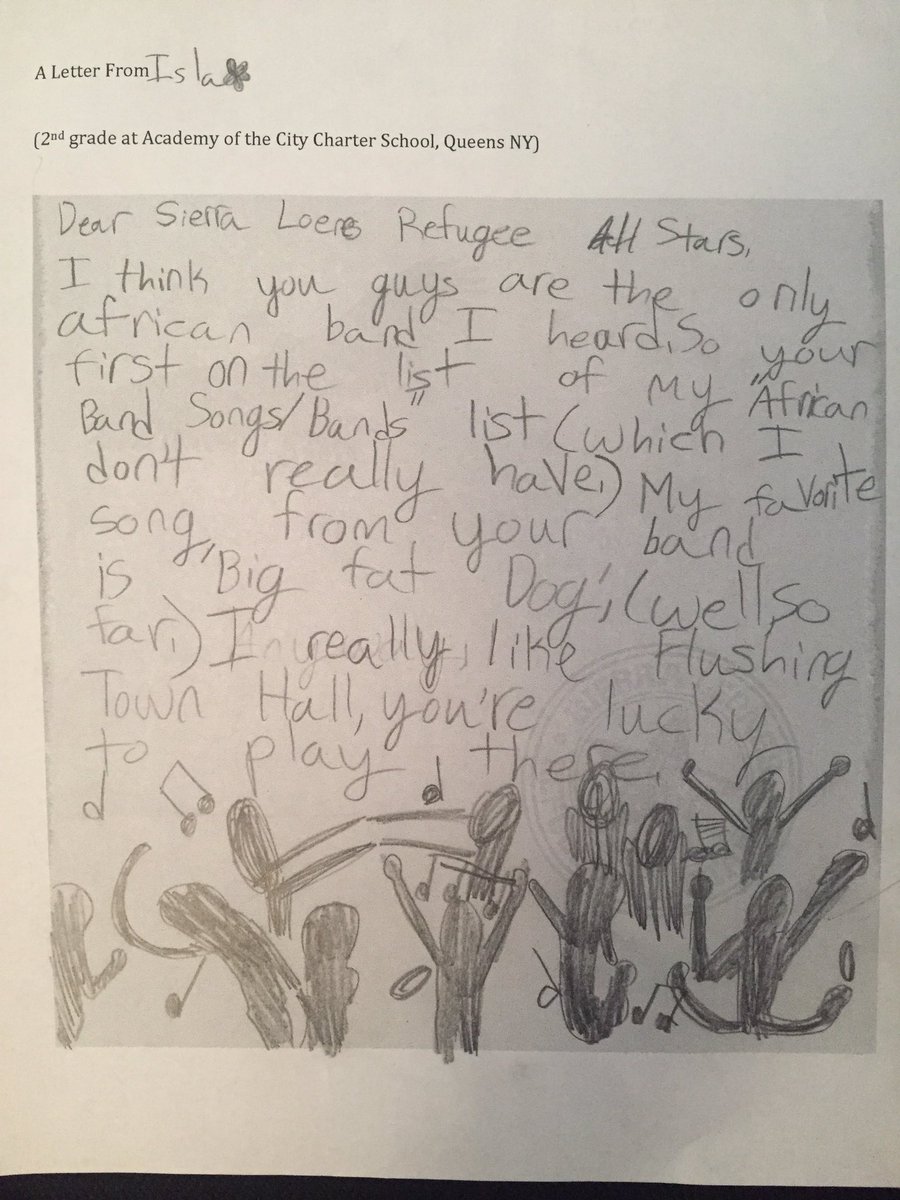 A Letter From Isla
(2nd grade at Academy of the City Charter School, Queens NY)
Dear Sierra Loere Refugee All Stars,
I think you guys are the only
african band I heard, So your
first on the list of My "African
Band Songs/Bands" list (which I
don't really have,) My favorite
song, from your band
is "Big fat Dog", (well, so
far,) I really, like Flushing
Town Hall, you're lucky
to play there.